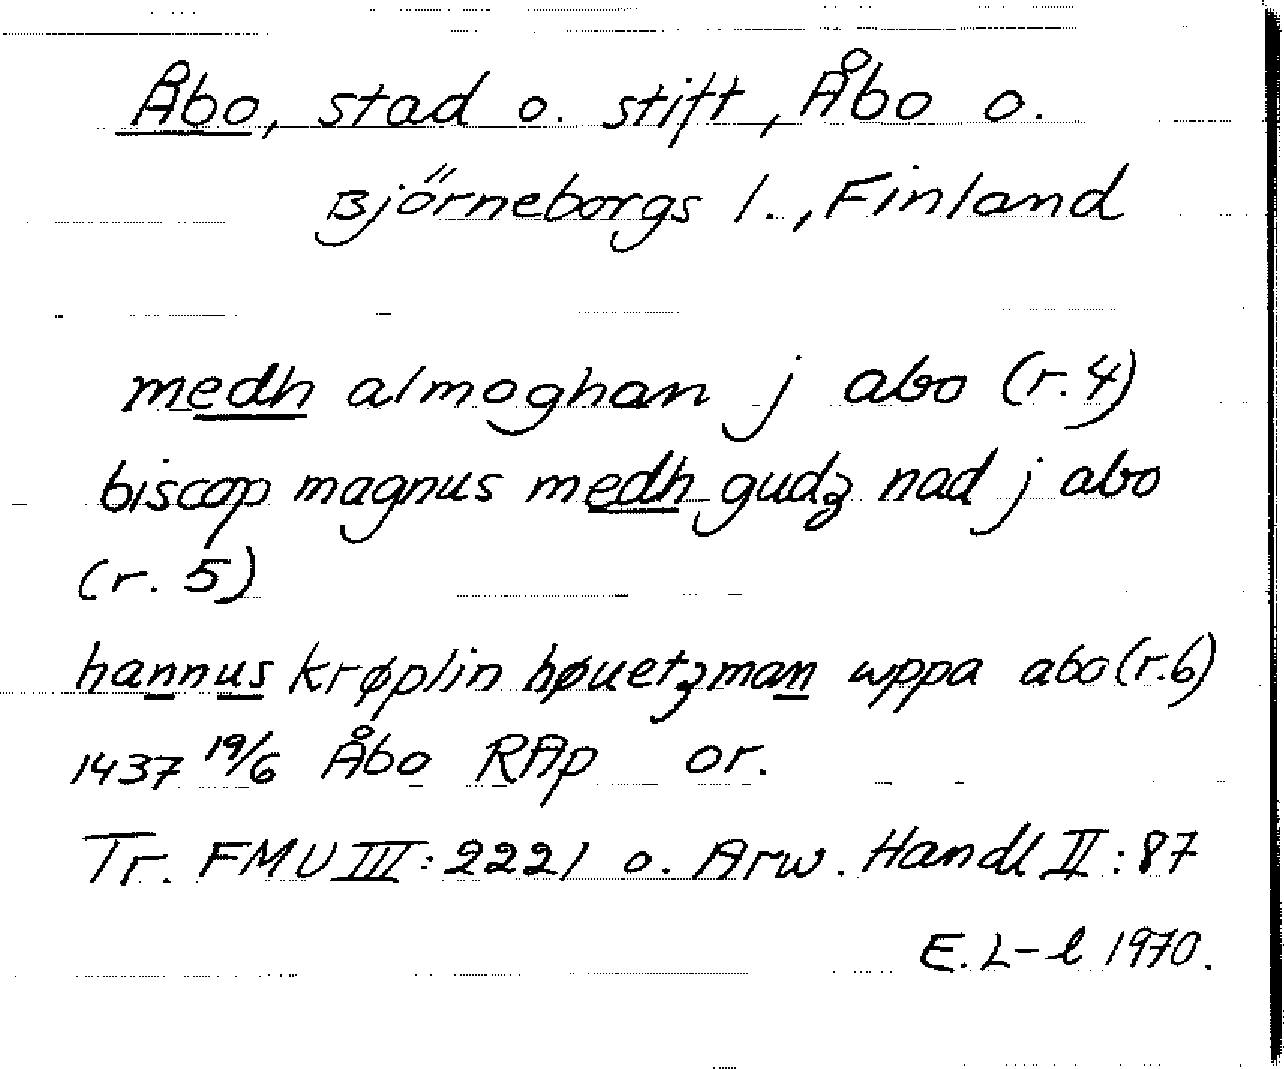 Åbo, stad o. stift, Åbo o.
Björneborgs l., Finland
medh almoghan j abo (r.4)
biscop magnus medh gudz nad j abo
(r. 5)
hannus krøplin høuetzman wppa abo (r.6)
1437 19/6 Åbo RAp or.
Tr. FMU III: 2221 o. Arw. Handl II: 87
E. L-l 1970.